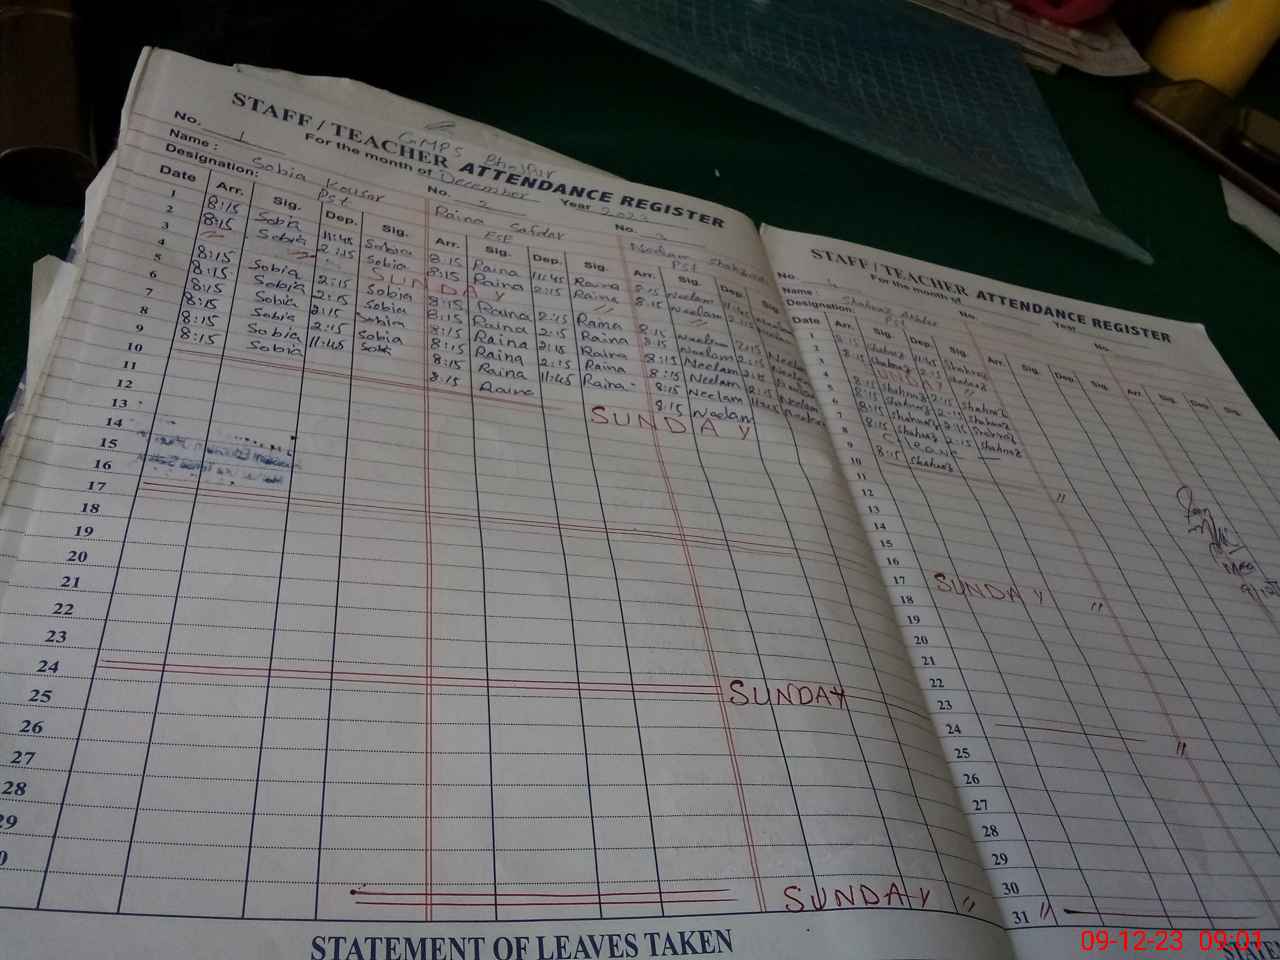 STAFF / TEACHER ATTENDANCE REGISTER
GMPS
For the month of December Year 2023
No. 1 No. 2 No. 3
Name : Sobia Kousar Raina Safdar Shahzad
Designation: Pst Pst
Date Arr. Sig. Dep. Sig. Arr. Sig. Dep. Sig. Arr. Sig. Dep. Sig.
1 8:15 Sobia 11:45 Sobia 8:15 Raina 11:45 Raina 8:15 Neelam 11:45
2 8:15 Sobia 2:15 Sobia 8:15 Raina 2:15 Raina 8:15 Neelam 2:15
3 SUNDAY
4 8:15 Sobia 2:15 Sobia 8:15 Raina 2:15 Raina 8:15 Neelam 2:15 Neelam
5 8:15 Sobia 2:15 Sobia 8:15 Raina 2:15 Raina 8:15 Neelam 2:15 Neelam
6 8:15 Sobia 2:15 Sobia 8:15 Raina 2:15 Raina 8:15 Neelam 2:15 Neelam
7 8:15 Sobia 2:15 Sobia 8:15 Raina 2:15 Raina 8:15 Neelam 2:15 Neelam
8 8:15 Sobia 11:45 Sobia 8:15 Raina 11:45 Raina 8:15 Neelam 11:45 Neelam
9 8:15 Sobia 8:15 Raina 8:15 Neelam
10 SUNDAY
11
12
13
14
15
16
17
18
19
20
21
22
23
24 SUNDAY
25
26
27
28
29
SUNDAY "
STATEMENT OF LEAVES TAKEN
STAFF / TEACHER ATTENDANCE REGISTER
For the month of Year
No. 4 No. No.
Name : Shahnaz Akhtar
Designation: Pst
Date Arr. Sig. Dep. Sig. Arr. Sig. Dep. Sig. Arr. Sig. Dep. Sig.
1 8:15 Shahnaz 11:45 Shahnaz
2 8:15 Shahnaz 2:15 Shahnaz
3
4 8:15 Shahnaz 2:15 Shahnaz
5 8:15 Shahnaz 2:15 Shahnaz
6 8:15 Shahnaz 2:15 Shahnaz
7 8:15 Shahnaz 2:15 Shahnaz
8 C leave
9 8:15 Shahnaz
10 "
11
12
13
14
15
16
17 SUNDAY "
18
19
20
21
22
23
24 "
25
26
27
28
29
30
31 "
09-12-23 09:01